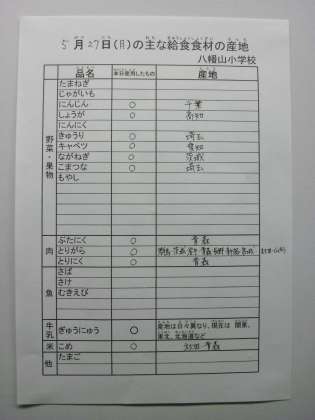 5月27日(月)の主な給食食材の産地
八幡山小学校
品名 本日使用したもの 産地
野菜・果物
たまねぎ
じゃがいも
にんじん ○ 千葉
しょうが ○ 高知
にんにく
きゅうり ○ 埼玉
キャベツ ○ 愛知
ながねぎ ○ 茨城
こまつな ○ 埼玉
もやし
肉
ぶたにく ○ 青森
とりがら ○
とりにく ○ 青森
魚
さば
さけ
むきえび
牛乳 ぎゅうにゅう ○ 産地は日々異なり、現在は 関東、
東北、北海道など
米 こめ ○ 青森
他 たまご